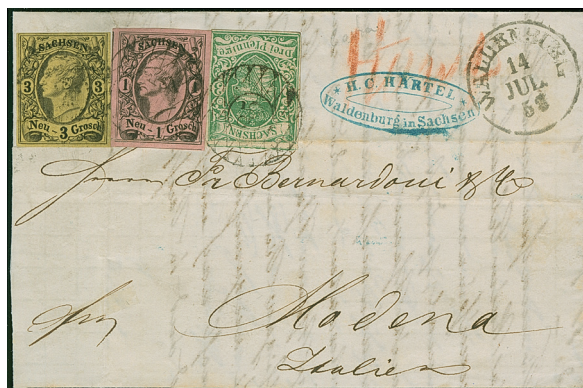 SACHSEN
3 3
Neu - 3 Grosch
SACHSEN
1 1
Neu - 1 Grosch
Drei Pfennige
SACHSEN
H. C. HÄRTEL
Waldenburg in Sachsen
WALDENBURG
14
JUL
58
franco
Herrn Fr. Bernardoni & Co
Modena
Italien